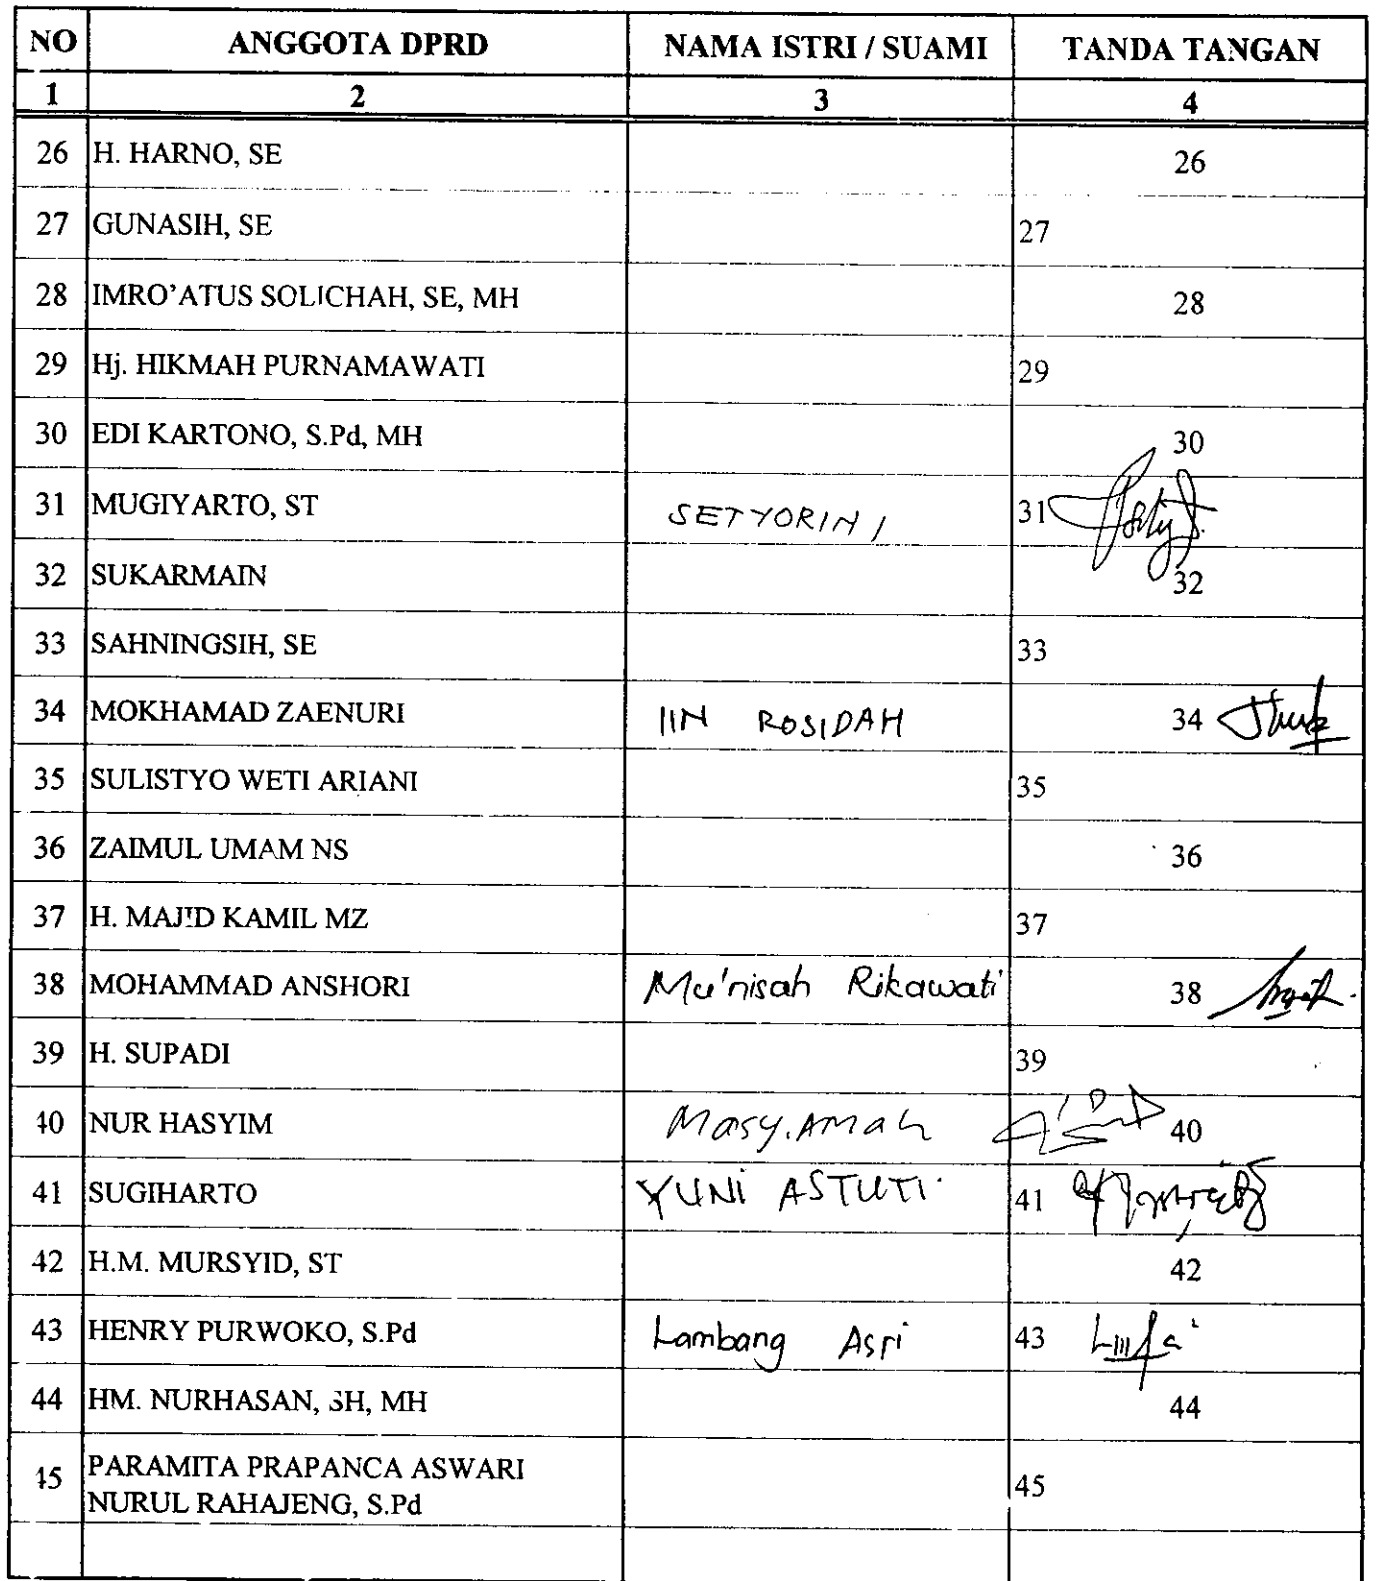 NO ANGGOTA DPRD NAMA ISTRI / SUAMI TANDA TANGAN
1 2 3 4
26 H. HARNO, SE 26
27 GUNASIH, SE 27
28 IMRO'ATUS SOLICHAH, SE, MH 28
29 Hj. HIKMAH PURNAMAWATI 29
30 EDI KARTONO, S.Pd, MH 30
31 MUGIYARTO, ST SETYORINI 31
32 SUKARMAIN 32
33 SAHNINGSIH, SE 33
34 MOKHAMAD ZAENURI IIN ROSIDAH 34
35 SULISTYO WETI ARIANI 35
36 ZAIMUL UMAM NS 36
37 H. MAJID KAMIL MZ 37
38 MOHAMMAD ANSHORI Mu'nisah Rikawati 38
39 H. SUPADI 39
40 NUR HASYIM Masy.Amah 40
41 SUGIHARTO YUNI ASTUTI. 41
42 H.M. MURSYID, ST 42
43 HENRY PURWOKO, S.Pd Lambang Asri 43
44 HM. NURHASAN, SH, MH 44
45 PARAMITA PRAPANCA ASWARI 45
NURUL RAHAJENG, S.Pd